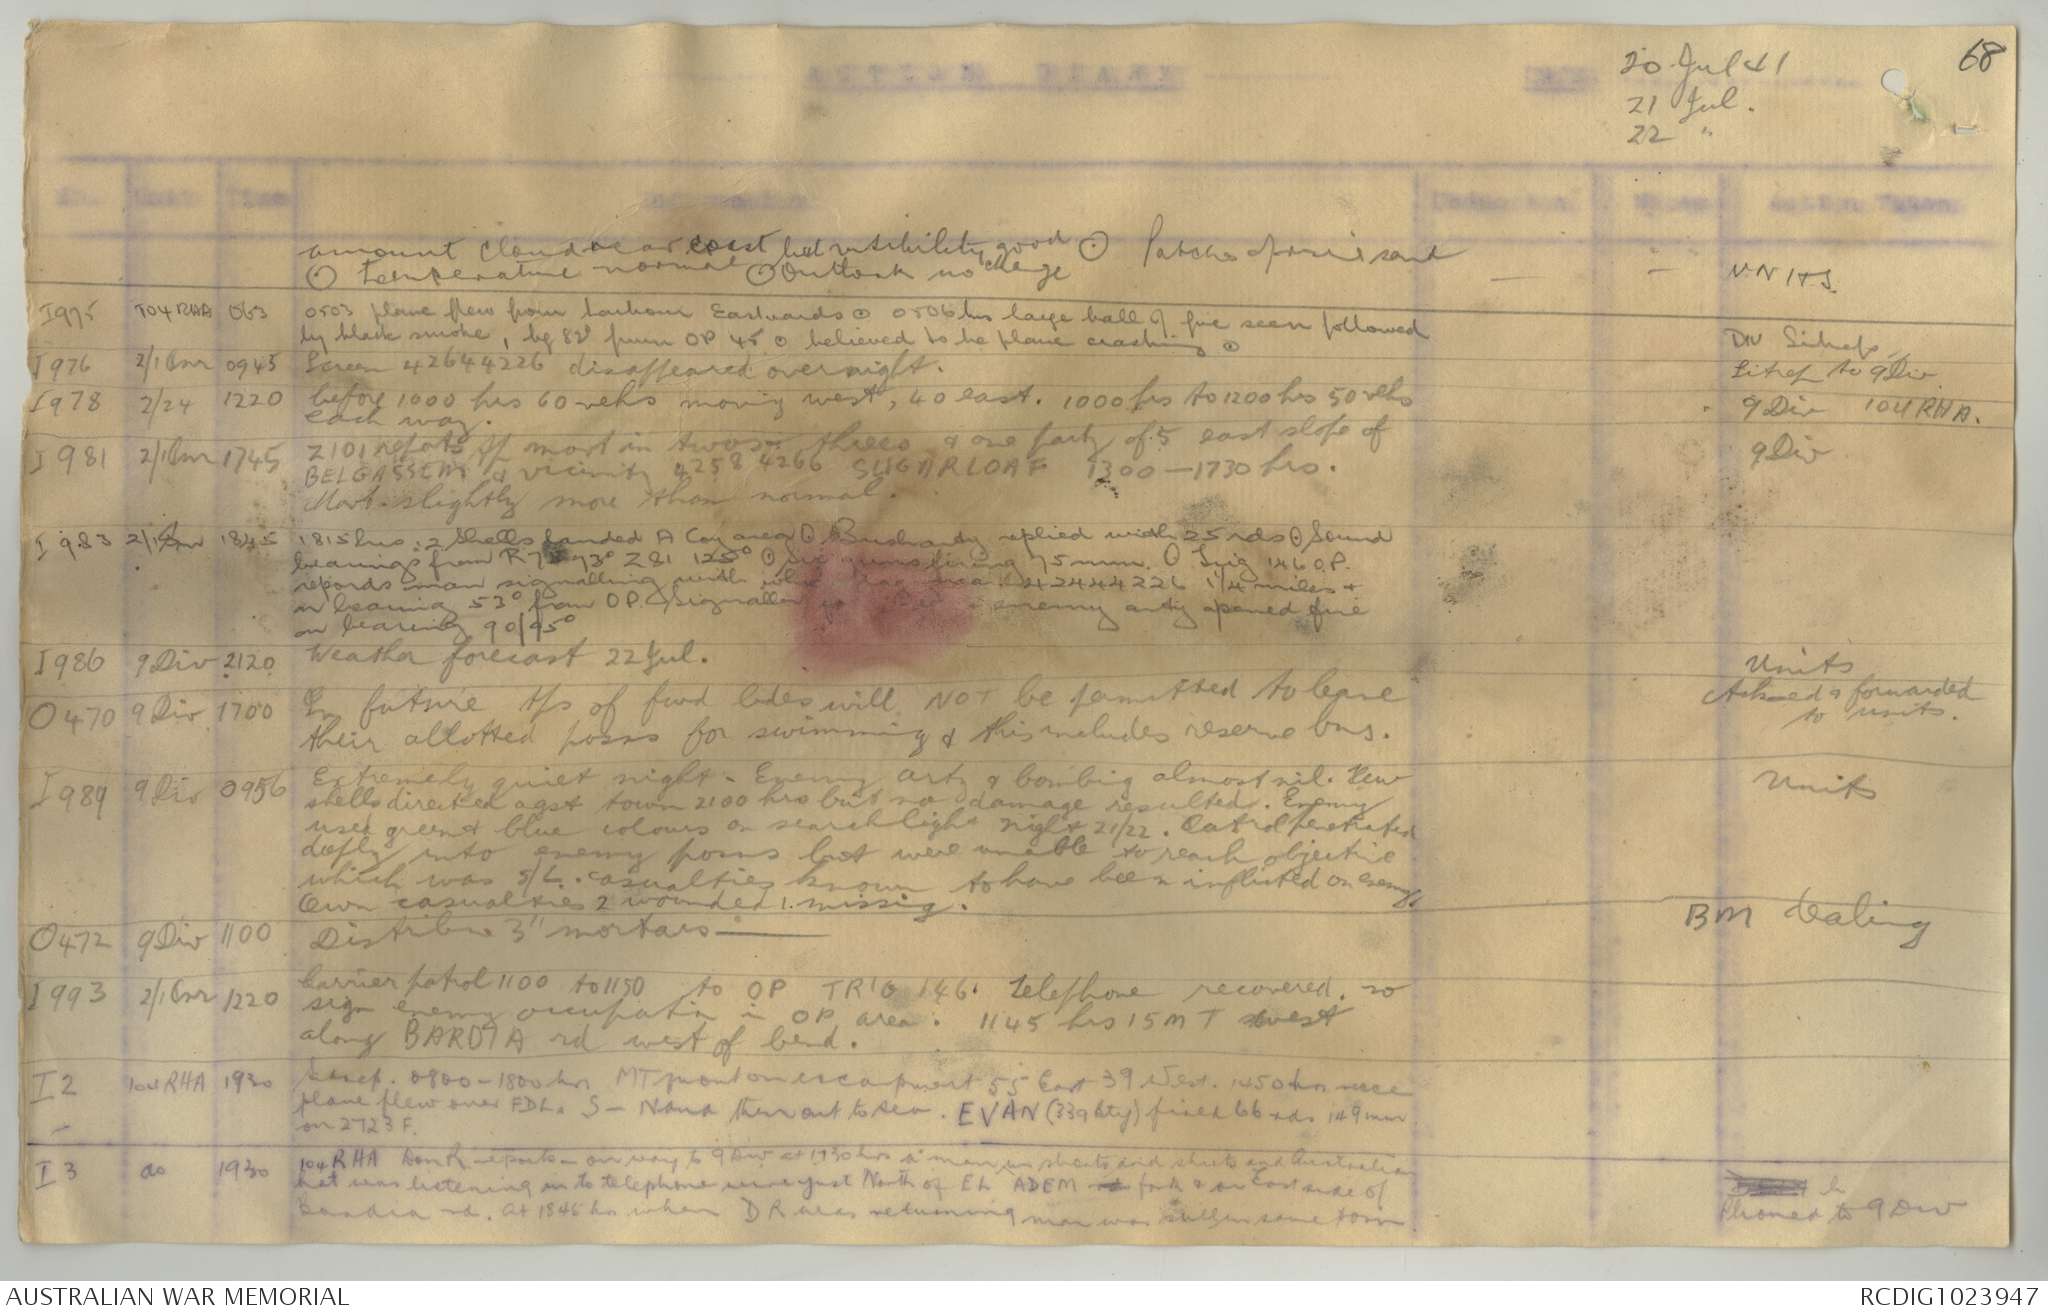 68
20 Jul 41
21 Jul.
22 "
amount cloud near coast but visibility good ⊙ Patches of rain
⊙ temperature normal ⊙ Outlook no change
UNITS
I975 104 RHA 0503 plane flew from harbour Eastwards ⊙ 0506 hrs large ball of fire seen followed
by black smoke, bg 82° from OP 45 ⊙ believed to be plane crashing ⊙
Div Sitreps
I976 2/1 Pnr 0945 Screen 42644226 disappeared overnight.
Sitrep to 9 Div
I978 2/24 1220 before 1000 hrs 60 vehs moving west, 40 east. 1000 hrs to 1200 hrs 50 vehs
each way.
9 Div 104 RHA.
I981 2/1 Pnr 1745 Z101 reports mort in twos threes & one party of 5 east slope of
BELGASSEM & vicinity 4258 4266 SUGARLOAF 1300-1730 hrs.
Mort slightly more than normal.
9 Div
I983 2/1 Pnr 1845 1815 hrs: 2 shells landed A Coy area ⊙ Bush arty replied with 25 rds ⊙ Sound
bearings from R7 73° Z81 125° ⊙ guns firing 75 mm. ⊙ Trig 146 O.P.
reports man signalling with flag 42444226 1/4 miles +
on bearing 53° from O.P. Signaller enemy arty opened fire
on bearing 90/95°
I986 9 Div 2120 Weather forecast 22 Jul.
Units
O470 9 Div 1700 In future tps of fwd bdes will NOT be permitted to leave
their allotted posns for swimming & this includes reserve bns.
Acked & forwarded
to units.
I989 9 Div 0956 Extremely quiet night - Enemy arty & bombing almost nil. Few
shells directed agst town 2100 hrs but no damage resulted. Enemy
used green & blue colours on searchlight night 21/22. Patrol penetrated
deeply into enemy posns but were unable to reach objective
which was S/L. casualties known to have been inflicted on enemy.
Own casualties 2 wounded 1. missing.
Units
O472 9 Div 1100 Distribn 3" mortars
BM dealing
I993 2/1 Pnr 1220 Carrier patrol 1100 to 1150 to OP TRIG 146. Telephone recovered. no
sign enemy occupation in OP area. 1145 hrs 15 MT west
along BARDIA rd west of bend.
I2 104 RHA 1930 Sitrep. 0800-1800 hrs MT mont on escarpment 55 East 39 West. 1450 hrs recce
plane flew over FDLs S - N and then out to sea. EVAN (339 Bty) fired 66 rds 149 mm
on 2723 F.
I3 do 1930 104 RHA Don R reports - on way to 9 Div at 1730 hrs a man in shorts and shirts and Australian
hat was listening in to telephone wire just North of EL ADEM fork & on East side of
Bardia rd. At 1846 hrs when DR was returning man was still in same posn.
Phoned to 9 Div
AUSTRALIAN WAR MEMORIAL
RCDIG1023947